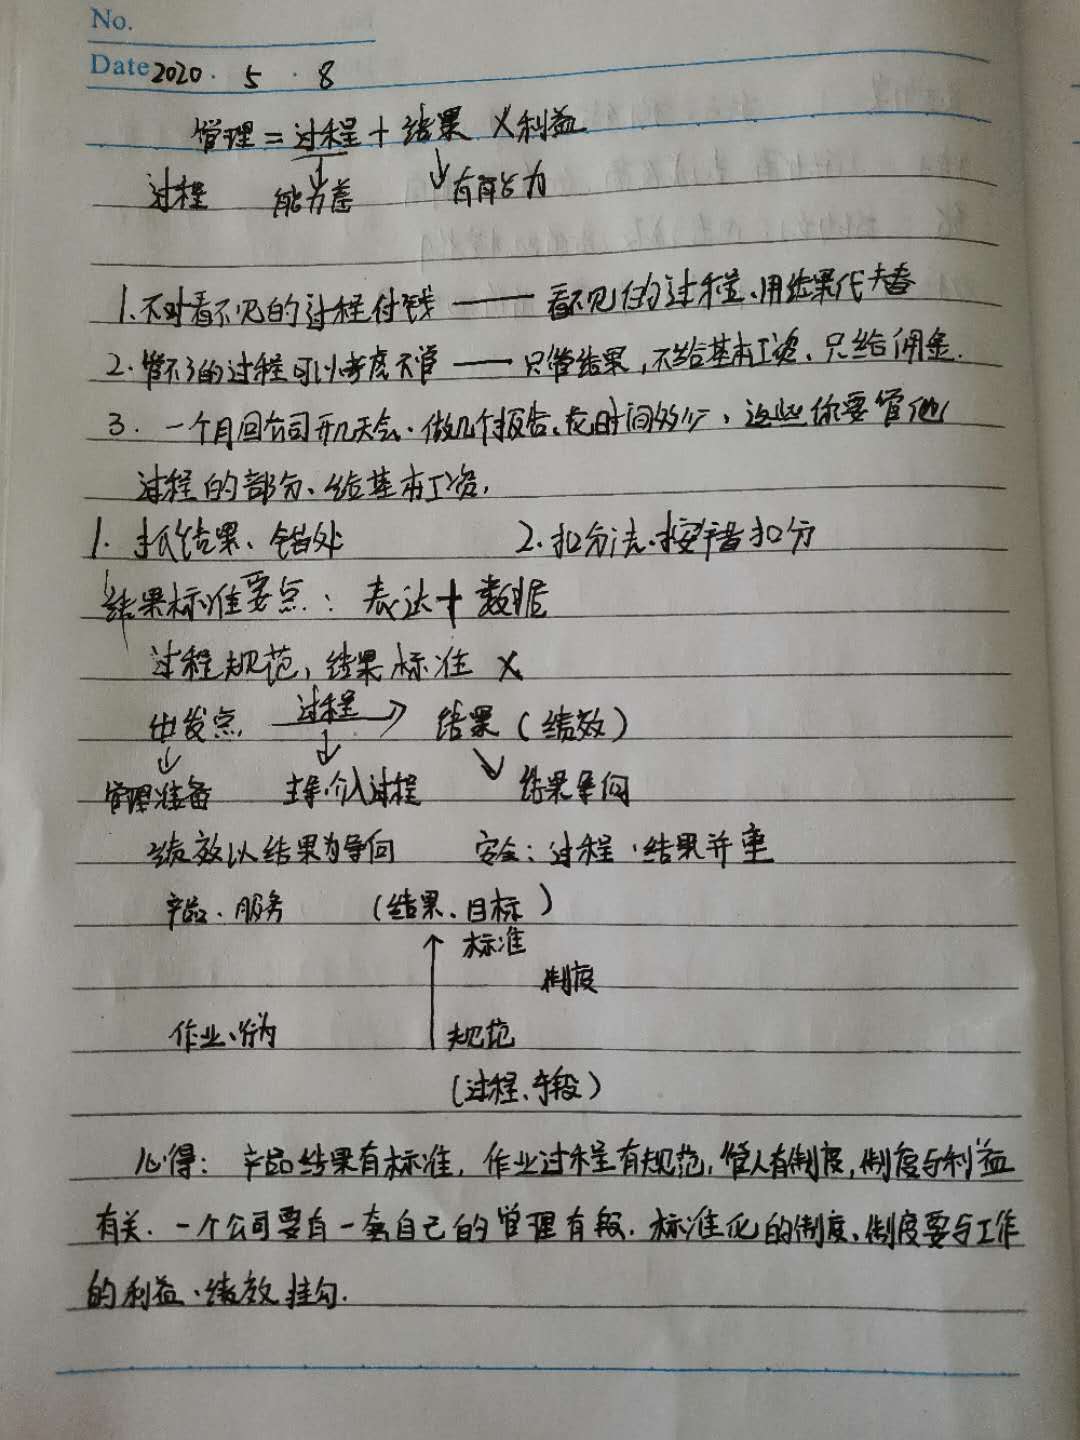 No.
Date 2020 · 5 · 8
管理 = 过程 + 结果 ×利益
过程 能力差 有能力
1.不对看不见的过程付钱 —— 看不见的过程、用结果代替
2.管不了的过程可以考虑不管 —— 只管结果,不给基本工资、只给佣金.
3. 一个月回公司开几天会、做几个报告、花时间多少、这些你要管他
过程的部分、给基本工资,
1. 抓结果、错处 2.扣分法、按错扣分
结果标准要点: 表达+数据
过程规范,结果标准 ×
出发点 过程 结果(绩效)
管理准备 主导、介入过程 结果导向
绩效以结果为导向 安全:过程、结果并重
产品、服务 (结果、目标)
标准
制度
作业、行为 规范
(过程、手段)
心得: 产品结果有标准, 作业过程有规范,管人有制度,制度与利益
有关. 一个公司要有一套自己的管理有段. 标准化的制度、制度要与工作
的利益、绩效挂勾.